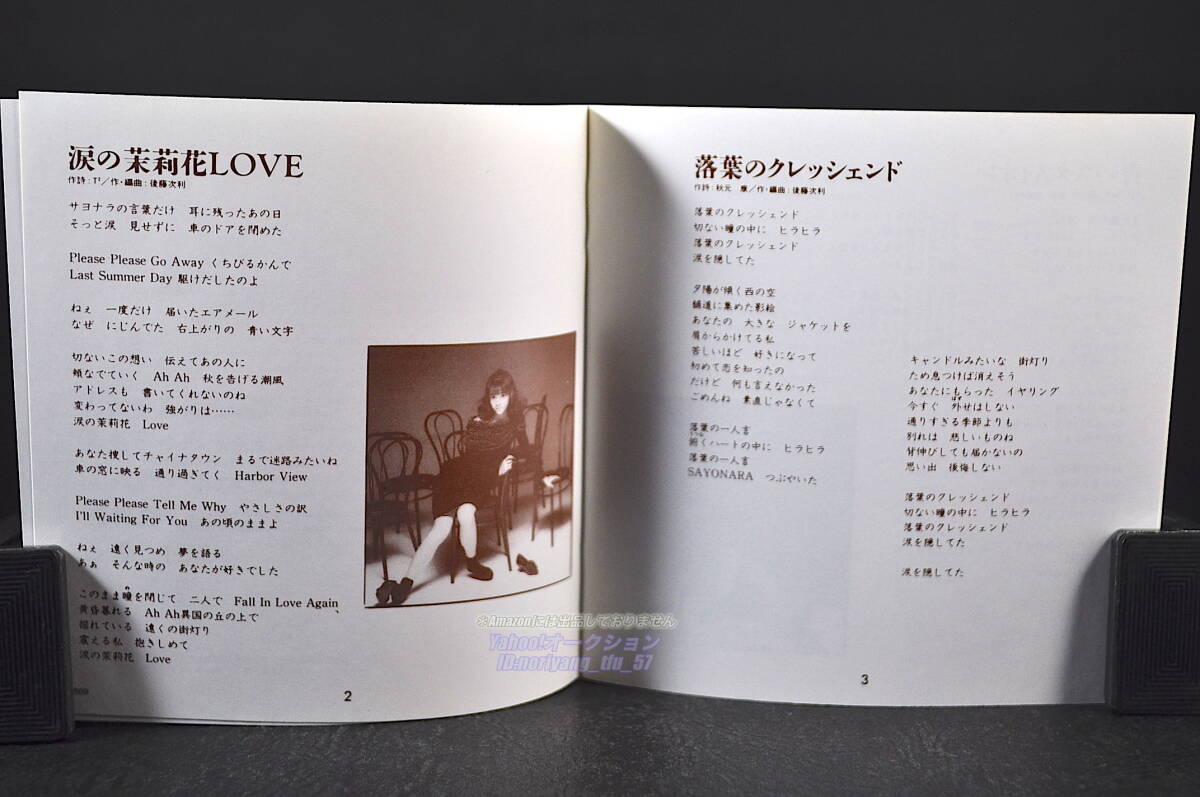 涙の茉莉花LOVE
作詩:T²/作・編曲:後藤次利
サヨナラの言葉だけ 耳に残ったあの日
そっと涙 見せずに 車のドアを閉めた
Please Please Go Away くちびるかんで
Last Summer Day 駆けだしたのよ
ねぇ 一度だけ 届いたエアメール
なぜ にじんでた 右上がりの 青い文字
切ないこの想い 伝えてあの人に
頬なでていく Ah Ah 秋を告げる潮風
アドレスも 書いてくれないのね
変わってないわ 強がりは……
涙の茉莉花 Love
あなた捜してチャイナタウン まるで迷路みたいね
車の窓に映る 通り過ぎてく Harbor View
Please Please Tell Me Why やさしさの訳
I'll Waiting For You あの頃のままよ
ねぇ 遠く見つめ 夢を語る
あぁ そんな時の あなたが好きでした
このまま瞳を閉じて 二人で Fall In Love Again
黄昏暮れる Ah Ah 異国の丘の上で
揺れている 遠くの街灯り
震える私 抱きしめて
涙の茉莉花 Love
2
落葉のクレッシェンド
作詩:秋元 康/作・編曲:後藤次利
落葉のクレッシェンド
切ない瞳の中に ヒラヒラ
落葉のクレッシェンド
涙を隠してた
夕陽が傾く西の空
舗道に集めた影絵
あなたの 大きな ジャケットを
肩からかけてる私
苦しいほど 好きになって
初めて恋を知ったの
だけど 何も言えなかった
ごめんね 素直じゃなくて
落葉の一人言
俯くハートの中に ヒラヒラ
落葉の一人言
SAYONARA つぶやいた
キャンドルみたいな 街灯り
ため息つけば消えそう
あなたにもらった イヤリング
今すぐ 外せはしない
通りすぎる季節よりも
別れは 悲しいものね
背伸びしても届かないの
思い出 後悔しない
落葉のクレッシェンド
切ない瞳の中に ヒラヒラ
落葉のクレッシェンド
涙を隠してた
涙を隠してた
3
※Amazonには出品しておりません
Yahoo!オークション
ID:noriyang_tfu_57